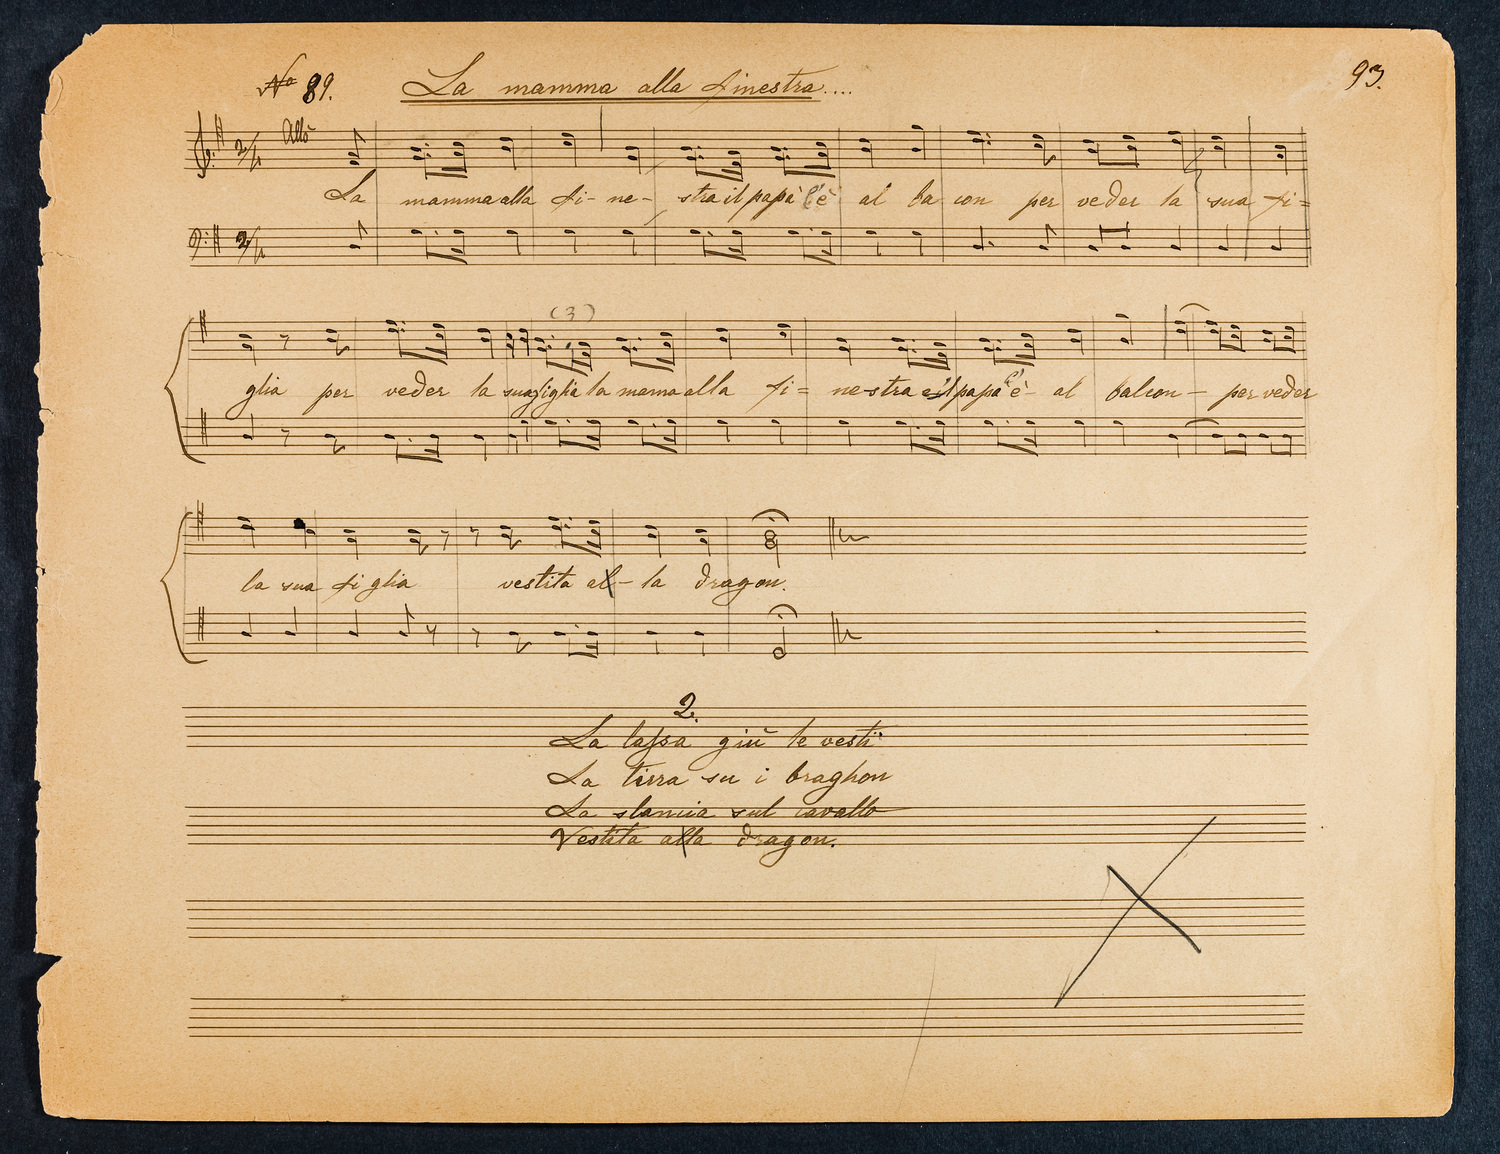 No 89. La mamma alla finestra.... 93.
Allo
La mamma alla fi- ne- stra il papà l'è al ba con per veder la sua fi=
(3)
glia per veder la sua figlia la mama alla fi= ne-stra e il papà l'è- al balcon- per veder
la sua fi glia vestita al- la dragon.
2.
La lassa giù le vesti
La tirra su i braghon
La slancia sul cavallo
Vestita alla dragon.